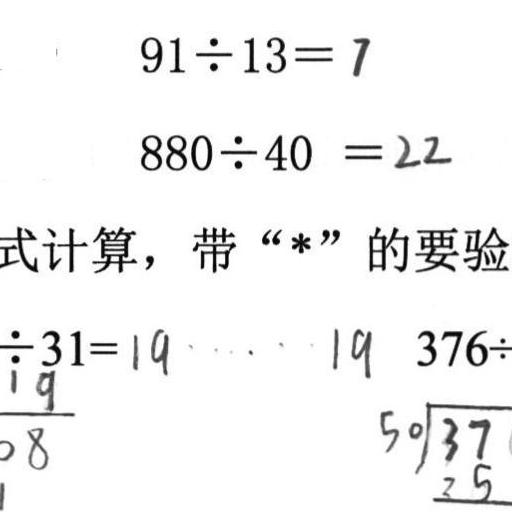 91÷13=7
880÷40 =22
式计算，带“*”的要验
÷31=19······19 376÷
19
08 50 37
25